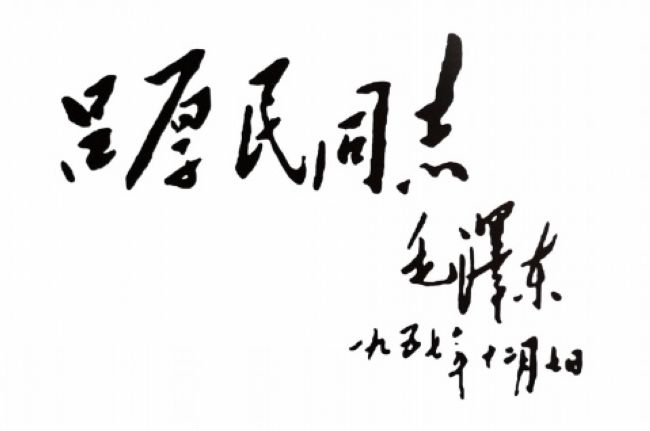 吕厚民同志
毛澤东
一九五七年十二月七日